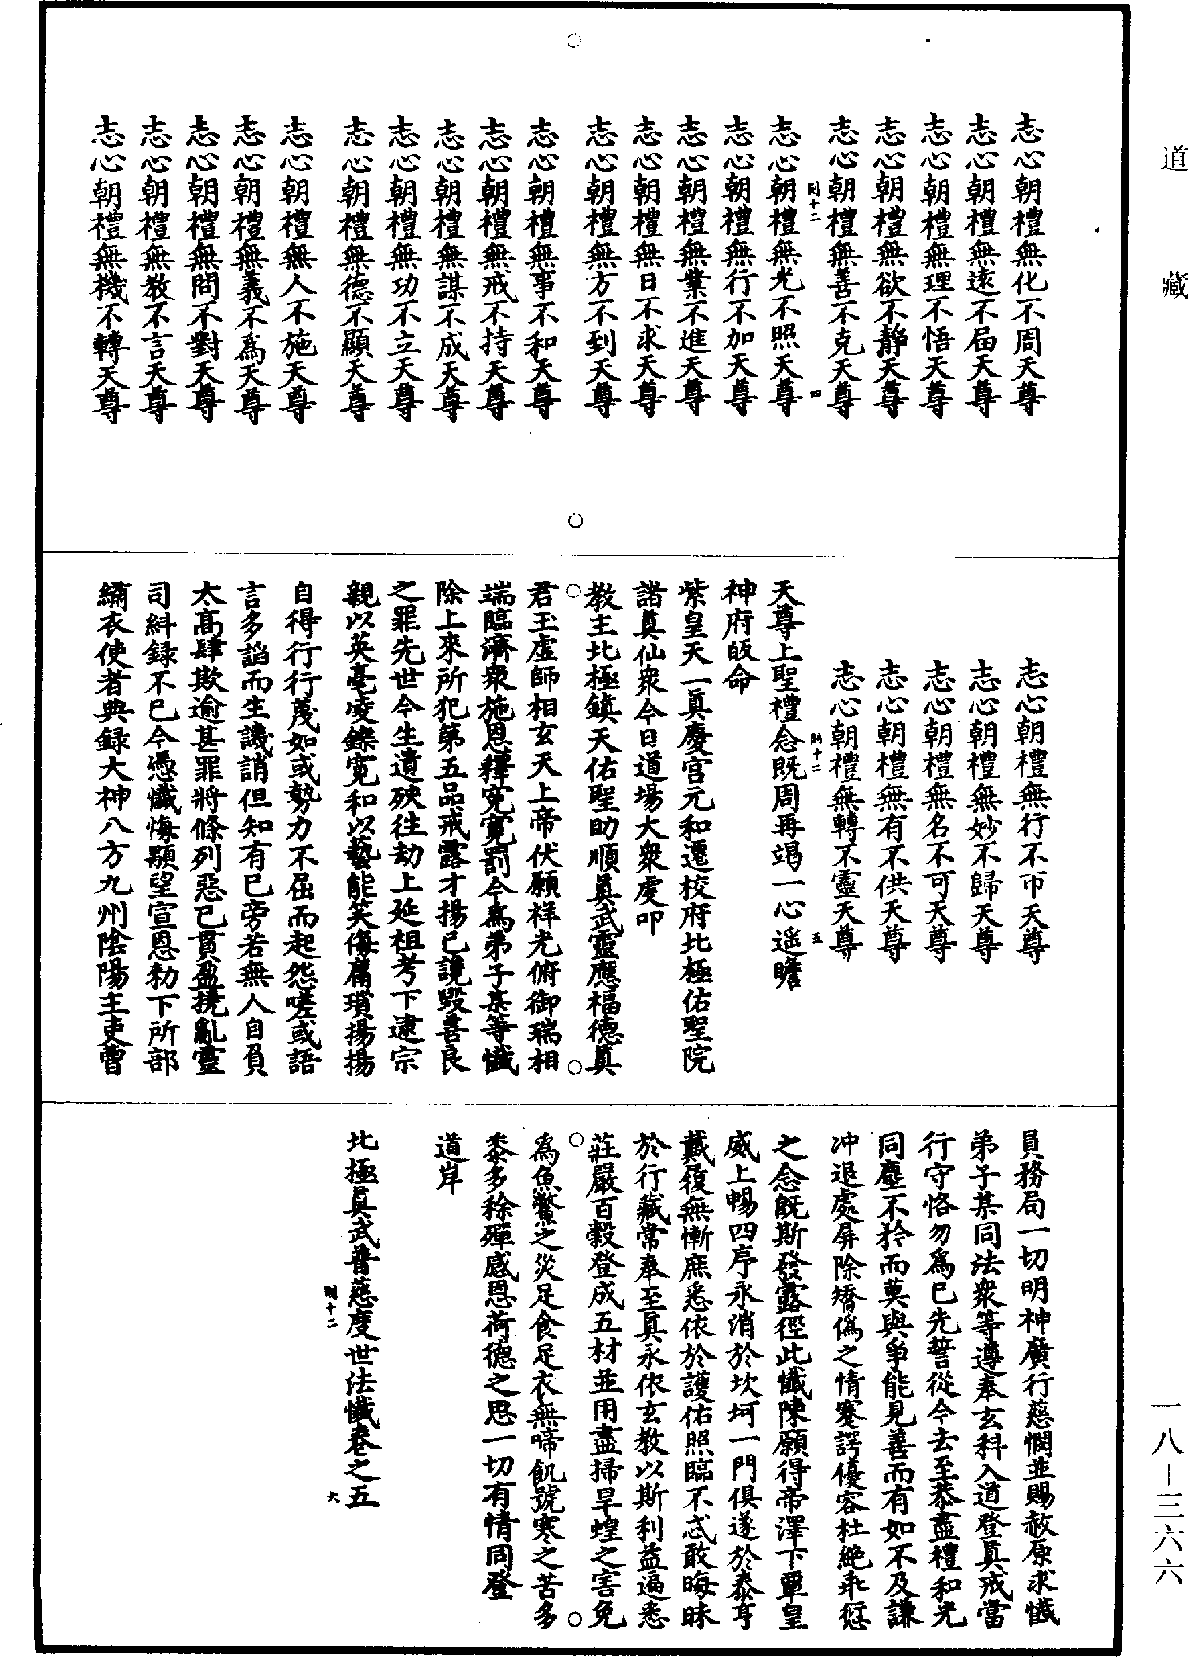 道藏
志心朝禮無化不周天尊
志心朝禮無遠不届天尊
志心朝禮無理不悟天尊
志心朝禮無欲不靜天尊
志心朝禮無善不克天尊
志心朝禮無光不照天尊
志心朝禮無行不加天尊
志心朝禮無業不進天尊
志心朝禮無日不求天尊
志心朝禮無方不到天尊
志心朝禮無事不和天尊
志心朝禮無戒不持天尊
志心朝禮無謀不成天尊
志心朝禮無功不立天尊
志心朝禮無德不顯天尊
志心朝禮無人不施天尊
志心朝禮無義不為天尊
志心朝禮無問不對天尊
志心朝禮無教不言天尊
志心朝禮無機不轉天尊
志心朝禮無行不帀天尊
志心朝禮無妙不歸天尊
志心朝禮無名不可天尊
志心朝禮有不供天尊
志心朝禮無轉不靈天尊
天尊上聖禮念既周再竭一心遥瞻
神府皈命
紫皇天一真慶宮元和遷校府北極佑聖院
諸真仙衆今日道場大衆虔叩
教主北極鎮天佑聖助順真武靈應福德真
君玉虛師相玄天上帝伏願祥光俯御瑞相
端臨濟衆施恩釋冤寬罰今為弟子某等懺
除上來所犯第五品戒露才揚己譭毀善良
之罪先世今生遺殃往劫上延祖考下逮宗
親以英毫凌鑠寬和以藝能笑侮羸瑣揚揚
自得行行蔑如或勢力不屈而起怨嗟或語
言多謟而生譏誚但知有己旁若無人自負
太高肆欺逾甚罪將條列惡已貫盈撓亂靈
司糾録不已今憑懺悔顒望宣恩勑下所部
繡衣使者典録大神八方九州陰陽主吏曹
員務局一切明神廣行慈憫並賜赦原求懺
弟子某同法衆等遵奉玄科入道登真戒當
行守恪勿為己先誓從今去至恭盡禮和光
同塵不矜而莫與爭能見善而有如不及謙
冲退處屏除矯偽之情蹇諤優容杜絶乖愆
之念既斯發露徑此懺陳願得帝澤下覃皇
威上暢四序永消於坎坷一門俱遂於泰亨
戴復無慚庶悉依於護佑照臨不忒敢晦昧
於行藏常奉至真永依玄教以斯利益遍悉
莊嚴百穀登成五材並用盡掃旱蝗之害免
為魚鱉之災足食足衣無啼飢號寒之苦多
黍多稌殫感恩荷德之思一切有情同登
道岸
北極真武普慈度世法懺卷之五
一八－三六六